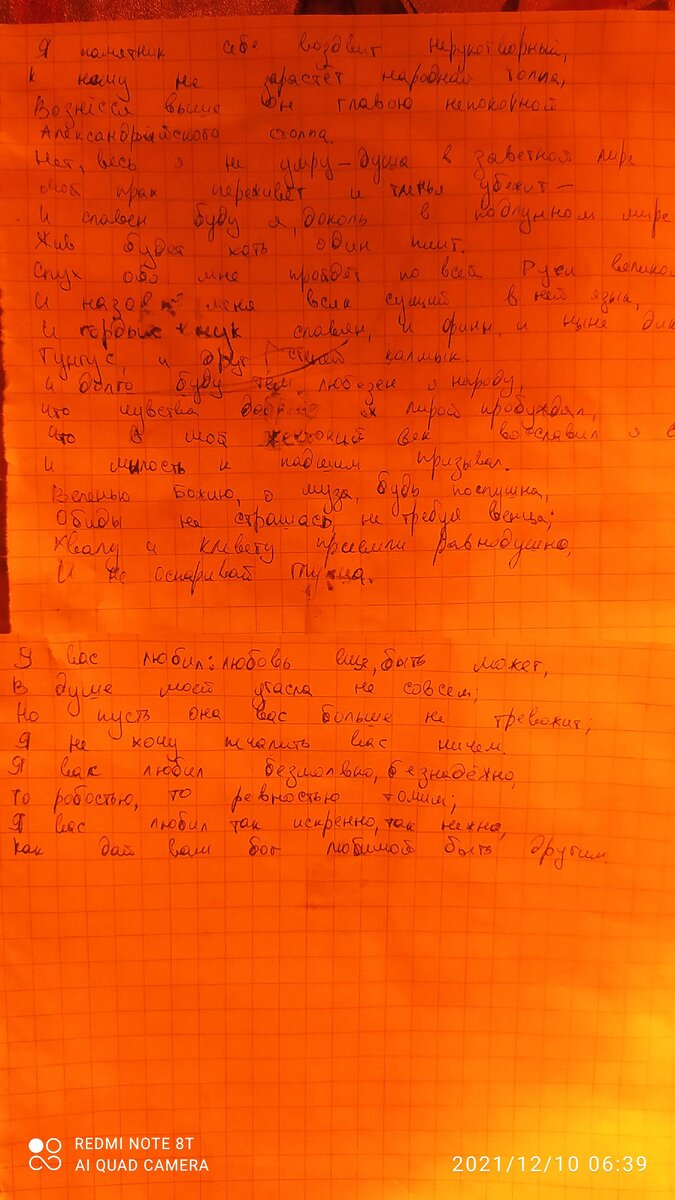 Я памятник себе воздвиг нерукотворный,
К нему не зарастёт народная толпа,
Вознёсся выше он главою непокорной
Александрийского столпа.
Нет, весь я не умру – душа в заветной лире
мой прах переживёт и тленья убежит –
И славен буду я, доколь в подлунном мире
Жив будет хоть один пиит.
Слух обо мне пройдёт по всей Руси великой
И назовёт меня всяк сущий в ней язык,
И гордый внук славян, и финн, и ныне дик
Тунгус, и друг степей калмык.
и долго буду тем любезен я народу,
что чувства добрые я лирой пробуждал,
что в мой жестокий век восславил я с
и милость к падшим призывал.
Веленью Божию, о муза, будь послушна,
Обиды не страшась, не требуя венца;
Хвалу и клевету приемли равнодушно,
И не оспаривай глупца.
Я вас любил: любовь ещё, быть может,
В душе моей угасла не совсем;
Но пусть она вас больше не тревожит;
Я не хочу печалить вас ничем.
Я вас любил безмолвно, безнадёжно,
То робостью, то ревностью томим;
Я вас любил так искренно, так нежно,
Как дай вам бог любимой быть другим.
REDMI NOTE 8T
AI QUAD CAMERA
2021/12/10 06:39